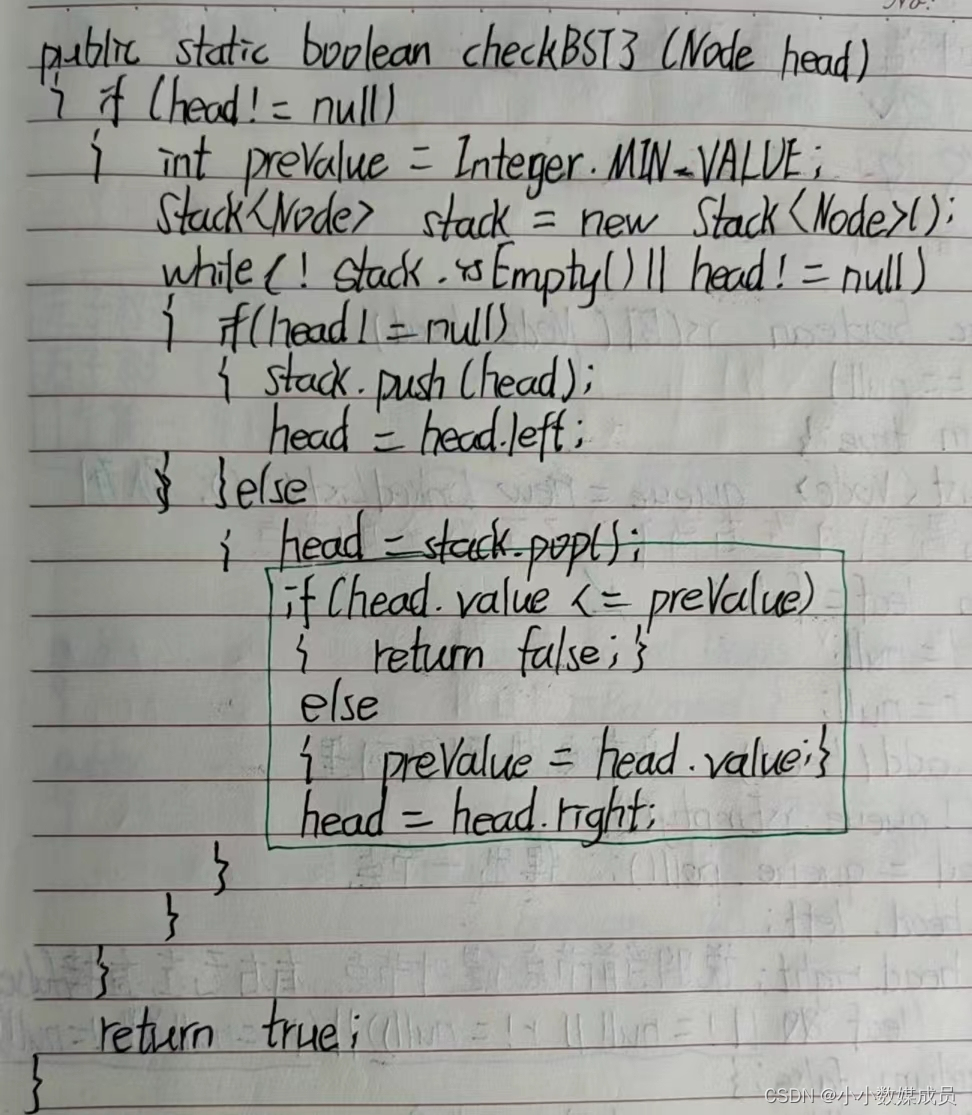 No.
public static boolean checkBST3 (Node head)
{ if (head != null)
{ int preValue = Integer.MIN_VALUE;
Stack<Node> stack = new Stack<Node>();
while (! stack.isEmpty() || head != null)
{ if (head != null)
{ stack.push(head);
head = head.left;
} }else
{ head = stack.pop();
if (head.value <= preValue)
{ return false;}
else
{ preValue = head.value;}
head = head.right;
}
}
}
return true;
}
CSDN @小小数媒成员